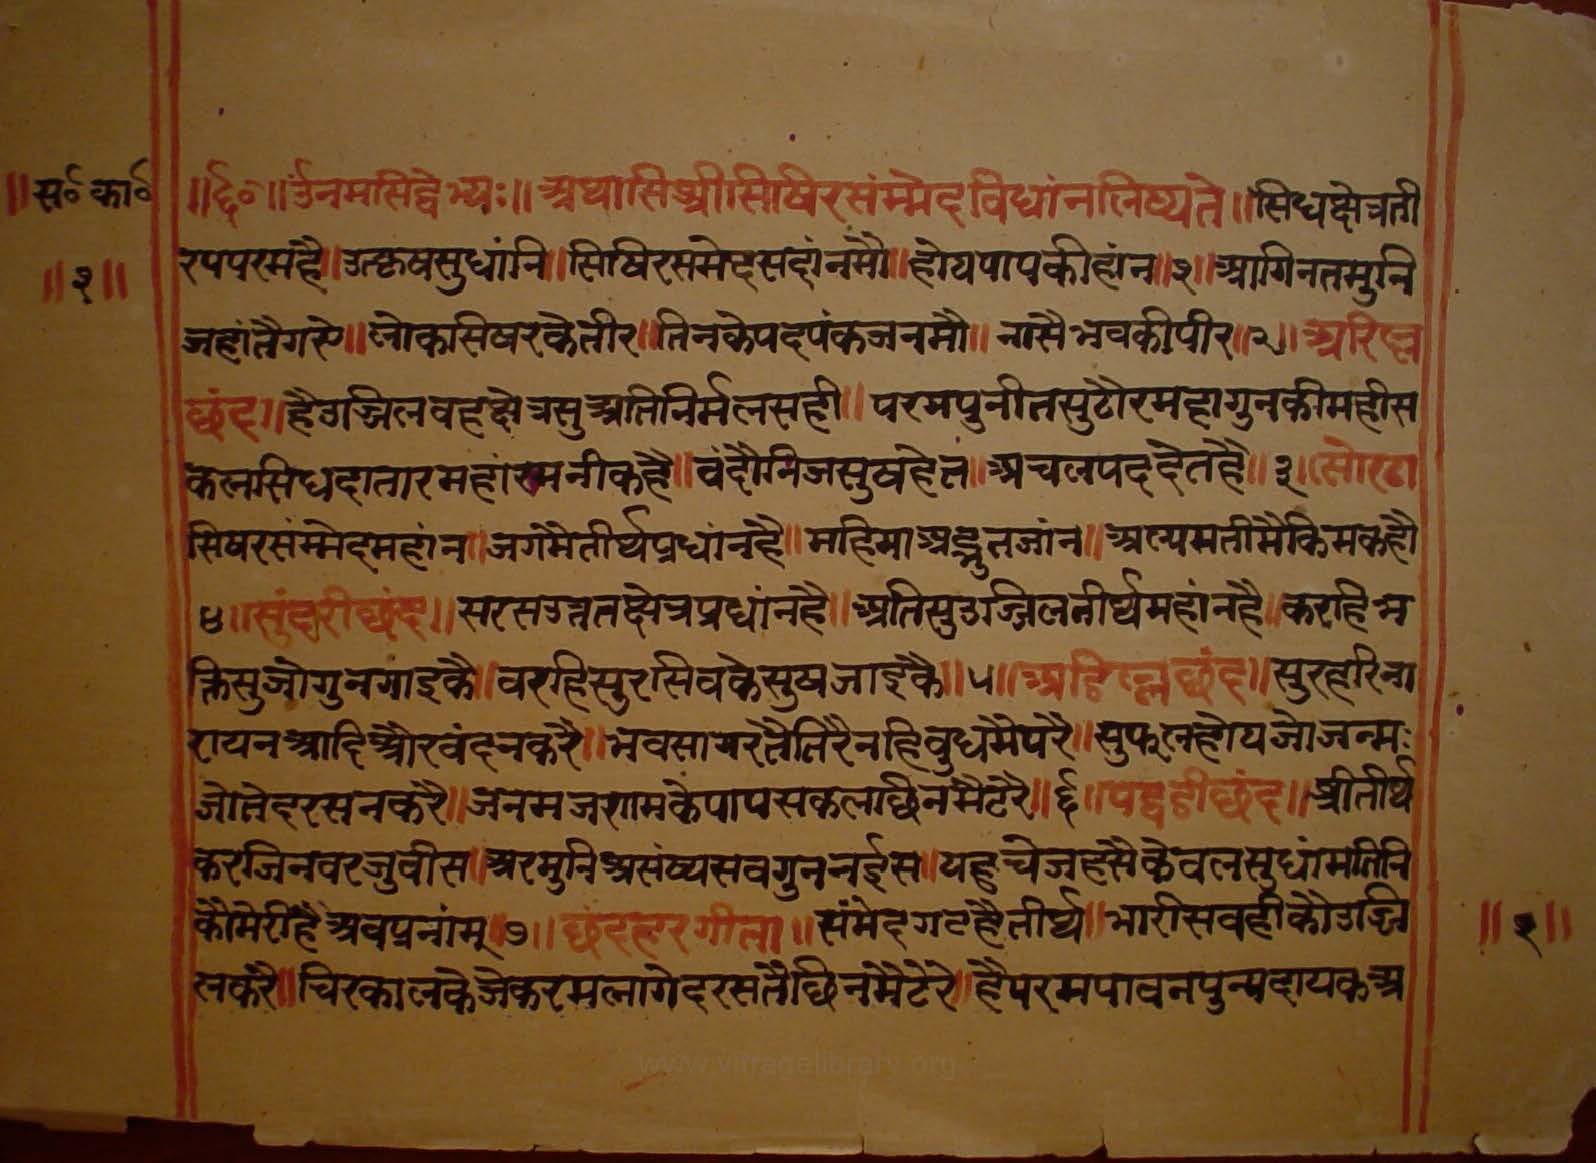 ॥स॰ का॰
॥१॥
॥र्द्द॰॥ उंनमसिद्धेभ्यः॥ अथासिश्रीसिषिरसंम्मेदविधांनलिष्यते॥ सिधषेत्रती
रपपरमहै॥ उतकृषसुधांनि॥ सिषिरसमेदसदांनमौ॥ होयपापकीहांन॥१॥ आगिनतमुनि
जहांतैगए॥ लोकसिषरकेतीर॥ तिनकेपदपंकजनमौ॥ नासैभवकीपीर॥२॥ अरिल्ल
छंद॥ हैउज्जिलवहक्षेत्रसुअतिनिर्मलसही॥ परमपुनीतसुठौरमहागुनकीमहीस
कलसिधदातारमहांरमनीकहै॥ वंदौनिजसुषहेत॥ अचलपददेतहै॥३॥ सोरठा
सिषरसंम्मेदमहांन॥ जगमैतीर्थप्रधांनहै॥ महिमाअद्भुतजांन॥ अल्पमतीमैकिमकहौ
४॥ सुंदरीछंद॥ सरसउन्नतक्षेत्रप्रधांनहै॥ अतिसुउज्जिलतीर्थमहांनहै॥ करहिभ
क्तिसुजोगुनगाइकै॥ वरहिसुरसिवकेसुषजाइकै॥५॥ अडिल्लछंद॥ सुरहरिना
रायनआदिऔरवंदनकरै॥ भवसागरतैतिरैनहिवुधमैपरै॥ सुफलहोयजोजन्मः
जोतेदरसनकरै॥ जनमजरामकेपापसकलछिनमैटरै॥६॥ पद्धडीछंद॥ श्रीतीर्थ
करजिनवरजुवीस॥ अरमुनिअसंष्यसवगुननईस॥ पहुचेजहसैकेवलसुधांमतिनि
कौमेरीहैअवप्रनांम॥७॥ छंदहरगीता॥ संमेदगढहैतीर्थ॥ भारीसवहीकौउज्जि
लकरै॥ चिरकालकेजेकरमलागेदरसतैछिनमैटरे॥ हैपरमपावनपुन्यदायकअ
॥१॥
www.vitragelibrary.org